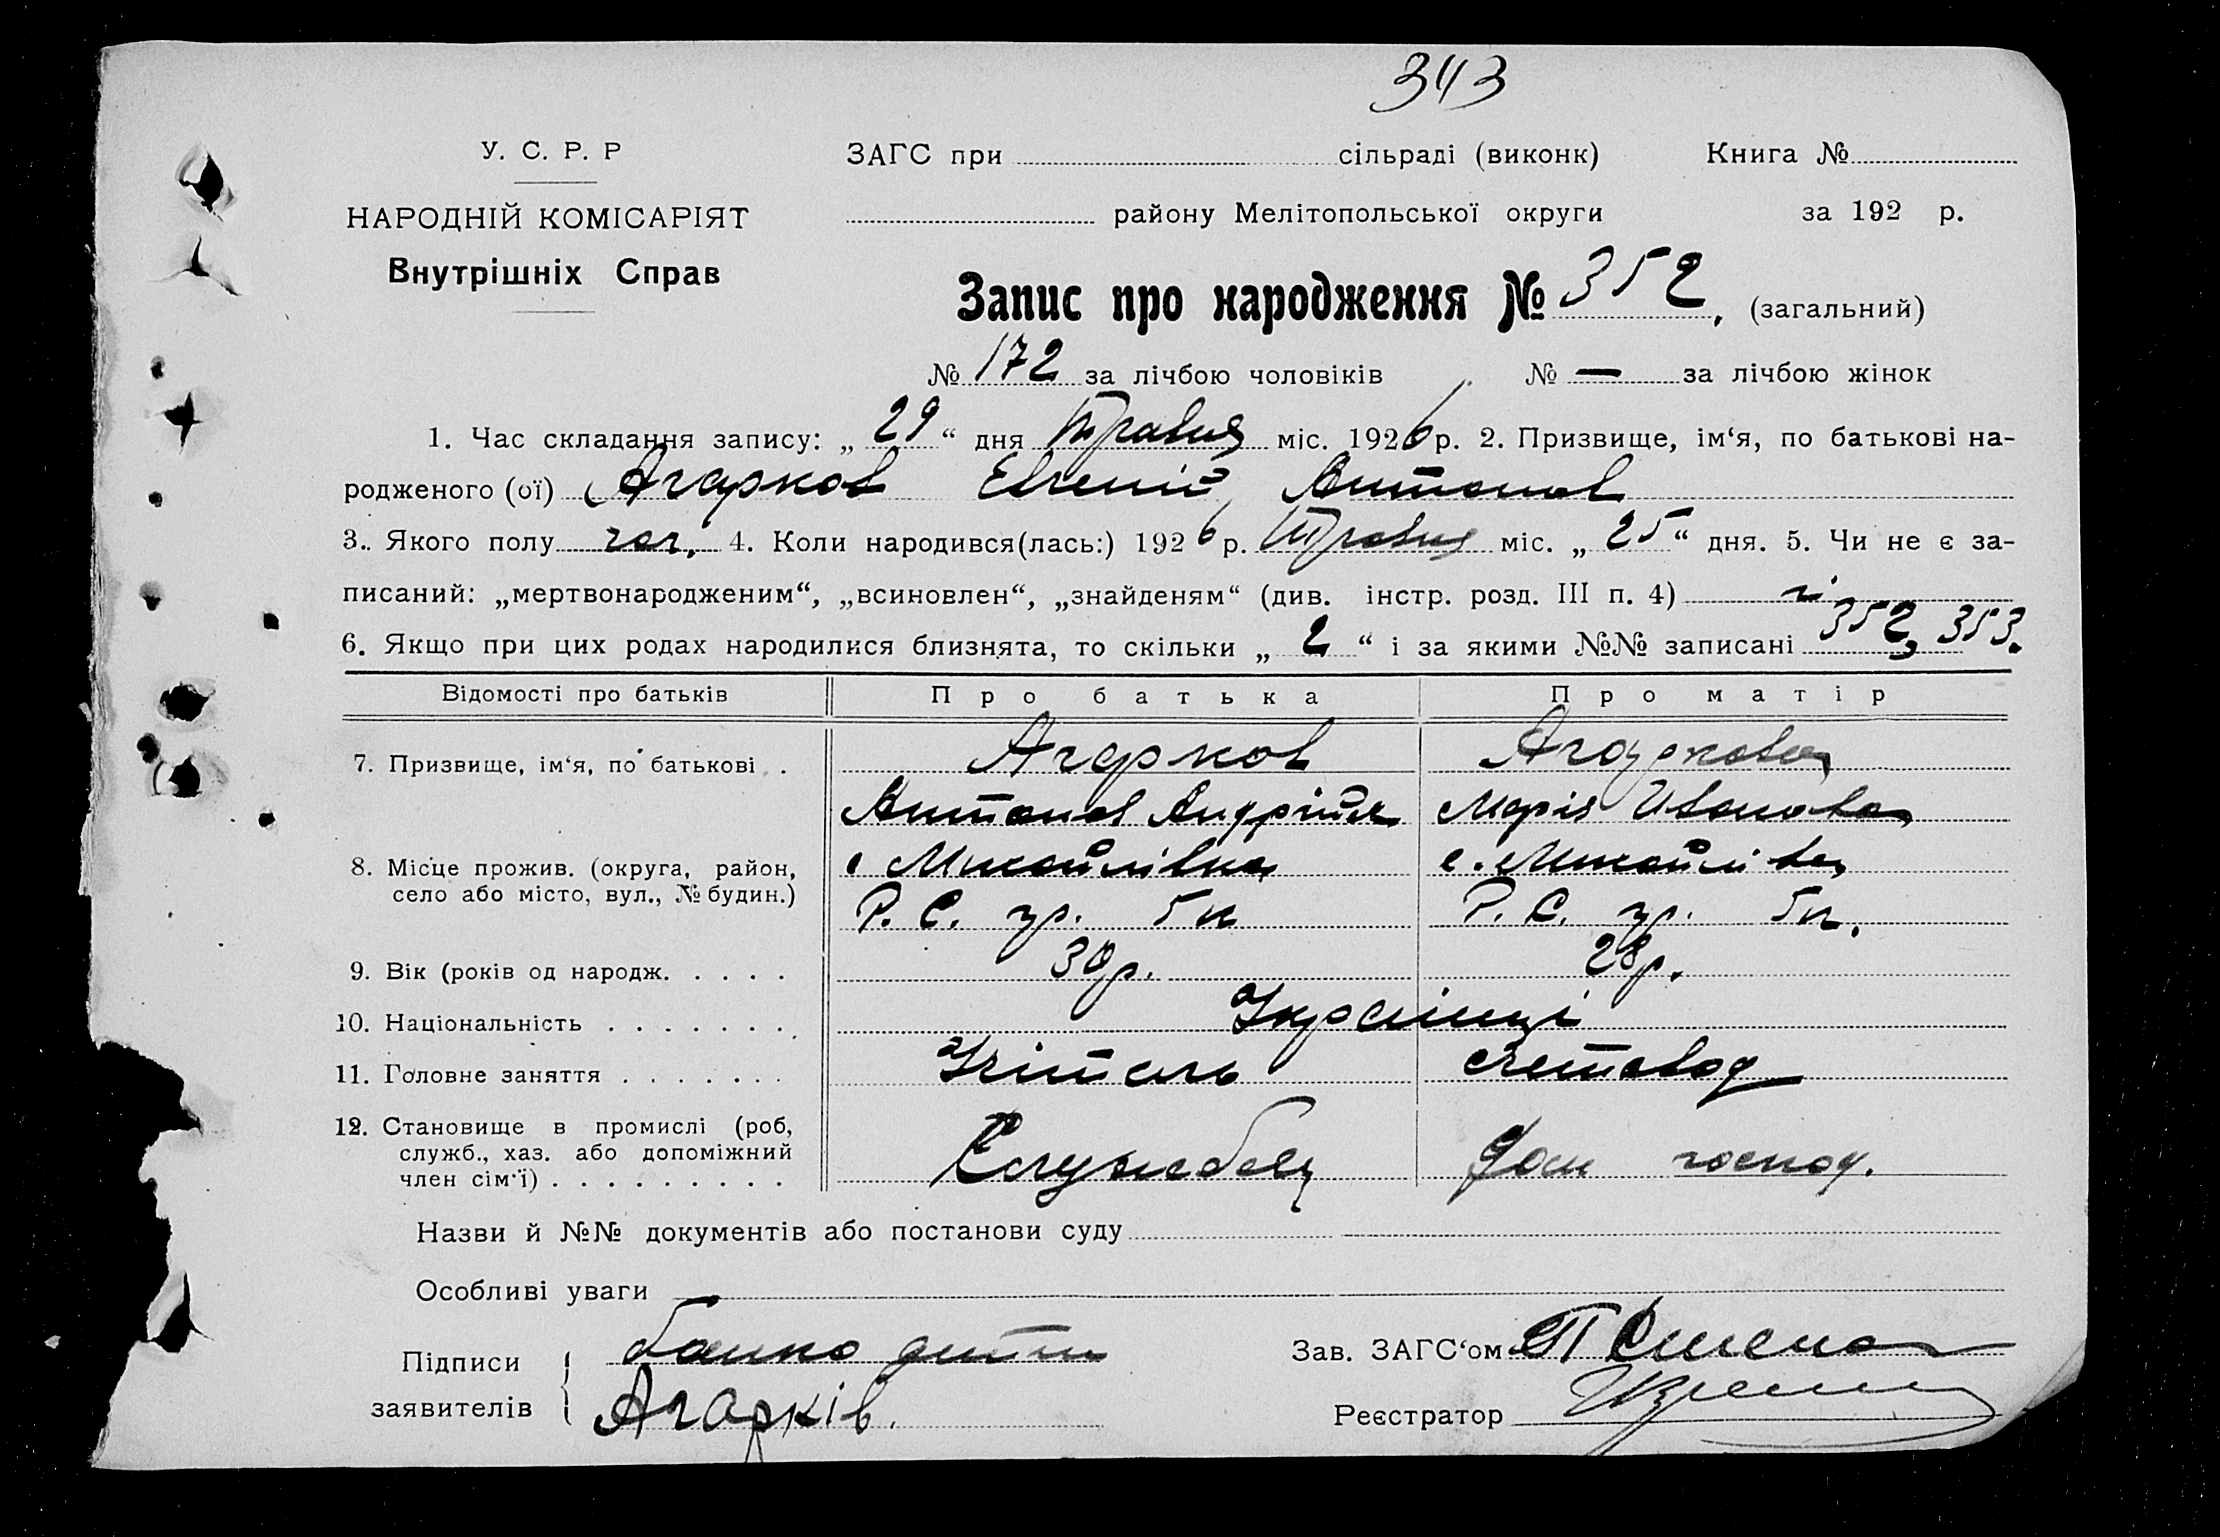 343
У. С. Р. Р
ЗАГС при сільраді (виконк) Книга №
НАРОДНІЙ КОМІСАРІЯТ
району Мелітопольської округи за 192 р.
Внутрішніх Справ
Запис про народження № 352, (загальний)
№ 172 за лічбою чоловіків № — за лічбою жінок
1. Час складання запису: „ 29 “ дня Травня міс. 1926 р. 2. Призвище, ім‘я, по батькові на-
родженого (ої) Агарков Евгеній Антонов
3. Якого полу чол. 4. Коли народився(лась:) 1926 р. Травня міс. „ 25 “ дня. 5. Чи не є за-
писаний: „мертвонародженим“, „всиновлен“, „знайденям“ (див. інстр. розд. III п. 4) ні
6. Якщо при цих родах народилися близнята, то скільки „ 2 “ і за якими №№ записані 352, 353.
Відомості про батьків Про батька Про матір
7. Призвище, ім‘я, по батькові . Агарков Агаркова
Антонов Марія Иванова
8. Місце прожив. (округа, район, с Михайлівка с. Михайлівка
село або місто, вул., № будин.) Р. С. гр. Р. С. гр.
9. Вік (років од народж. . . . . 30р. 28р.
10. Національність . . . . . . . . Українці
11. Головне заняття . . . . . . . Учітель счетовод
12. Становище в промислі (роб,
служб., хаз. або допоміжний Службовец Дом господ.
член сім‘ї) . . . . . . . . .
Назви й №№ документів або постанови суду
Особливі уваги
Підписи батько дитини Зав. ЗАГС‘ом
заявителів Агарків. Реєстратор